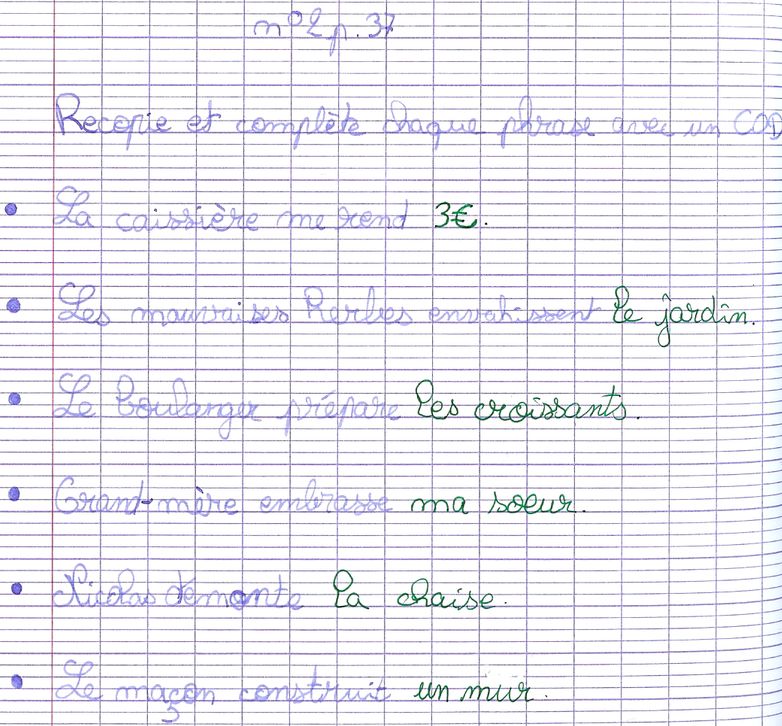 n°2 p.37
Recopie et complète chaque phrase avec un COD
La caissière me rend 3€.
Les mauvaises herbes envahissent le jardin.
Le boulanger prépare les croissants.
Grand-mère embrasse ma soeur.
Nicolas démonte la chaise.
Le maçon construit un mur.